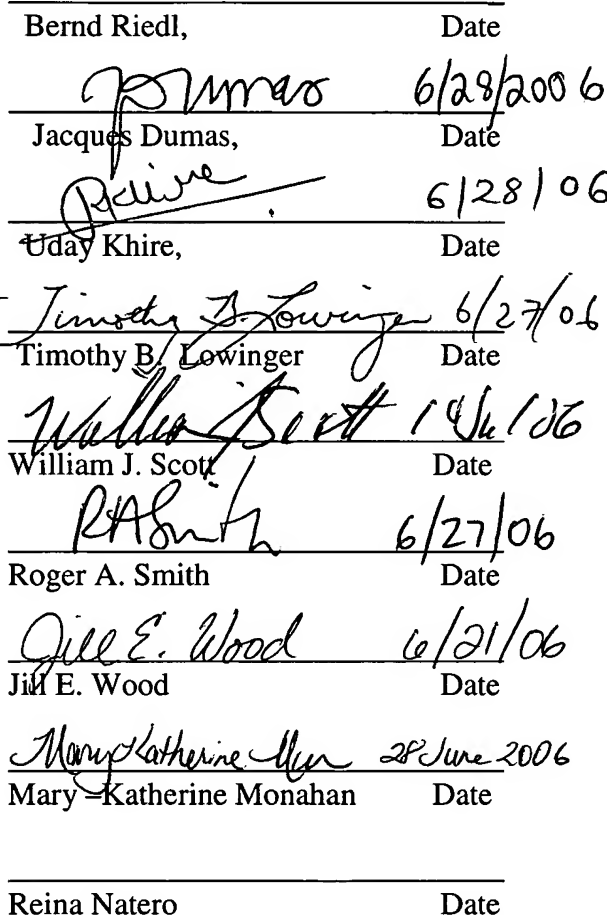 Bernd Riedl, Date
JDumas 6/28/2006
Jacques Dumas, Date
6/28/06
Uday Khire, Date
Timothy B. Lowinger 6/27/06
Timothy B. Lowinger Date
William J Scott
William J. Scott Date
RASmith 6/27/06
Roger A. Smith Date
Jill E. Wood 6/21/06
Jill E. Wood Date
Mary Katherine 28 June 2006
Mary –Katherine Monahan Date
Reina Natero Date